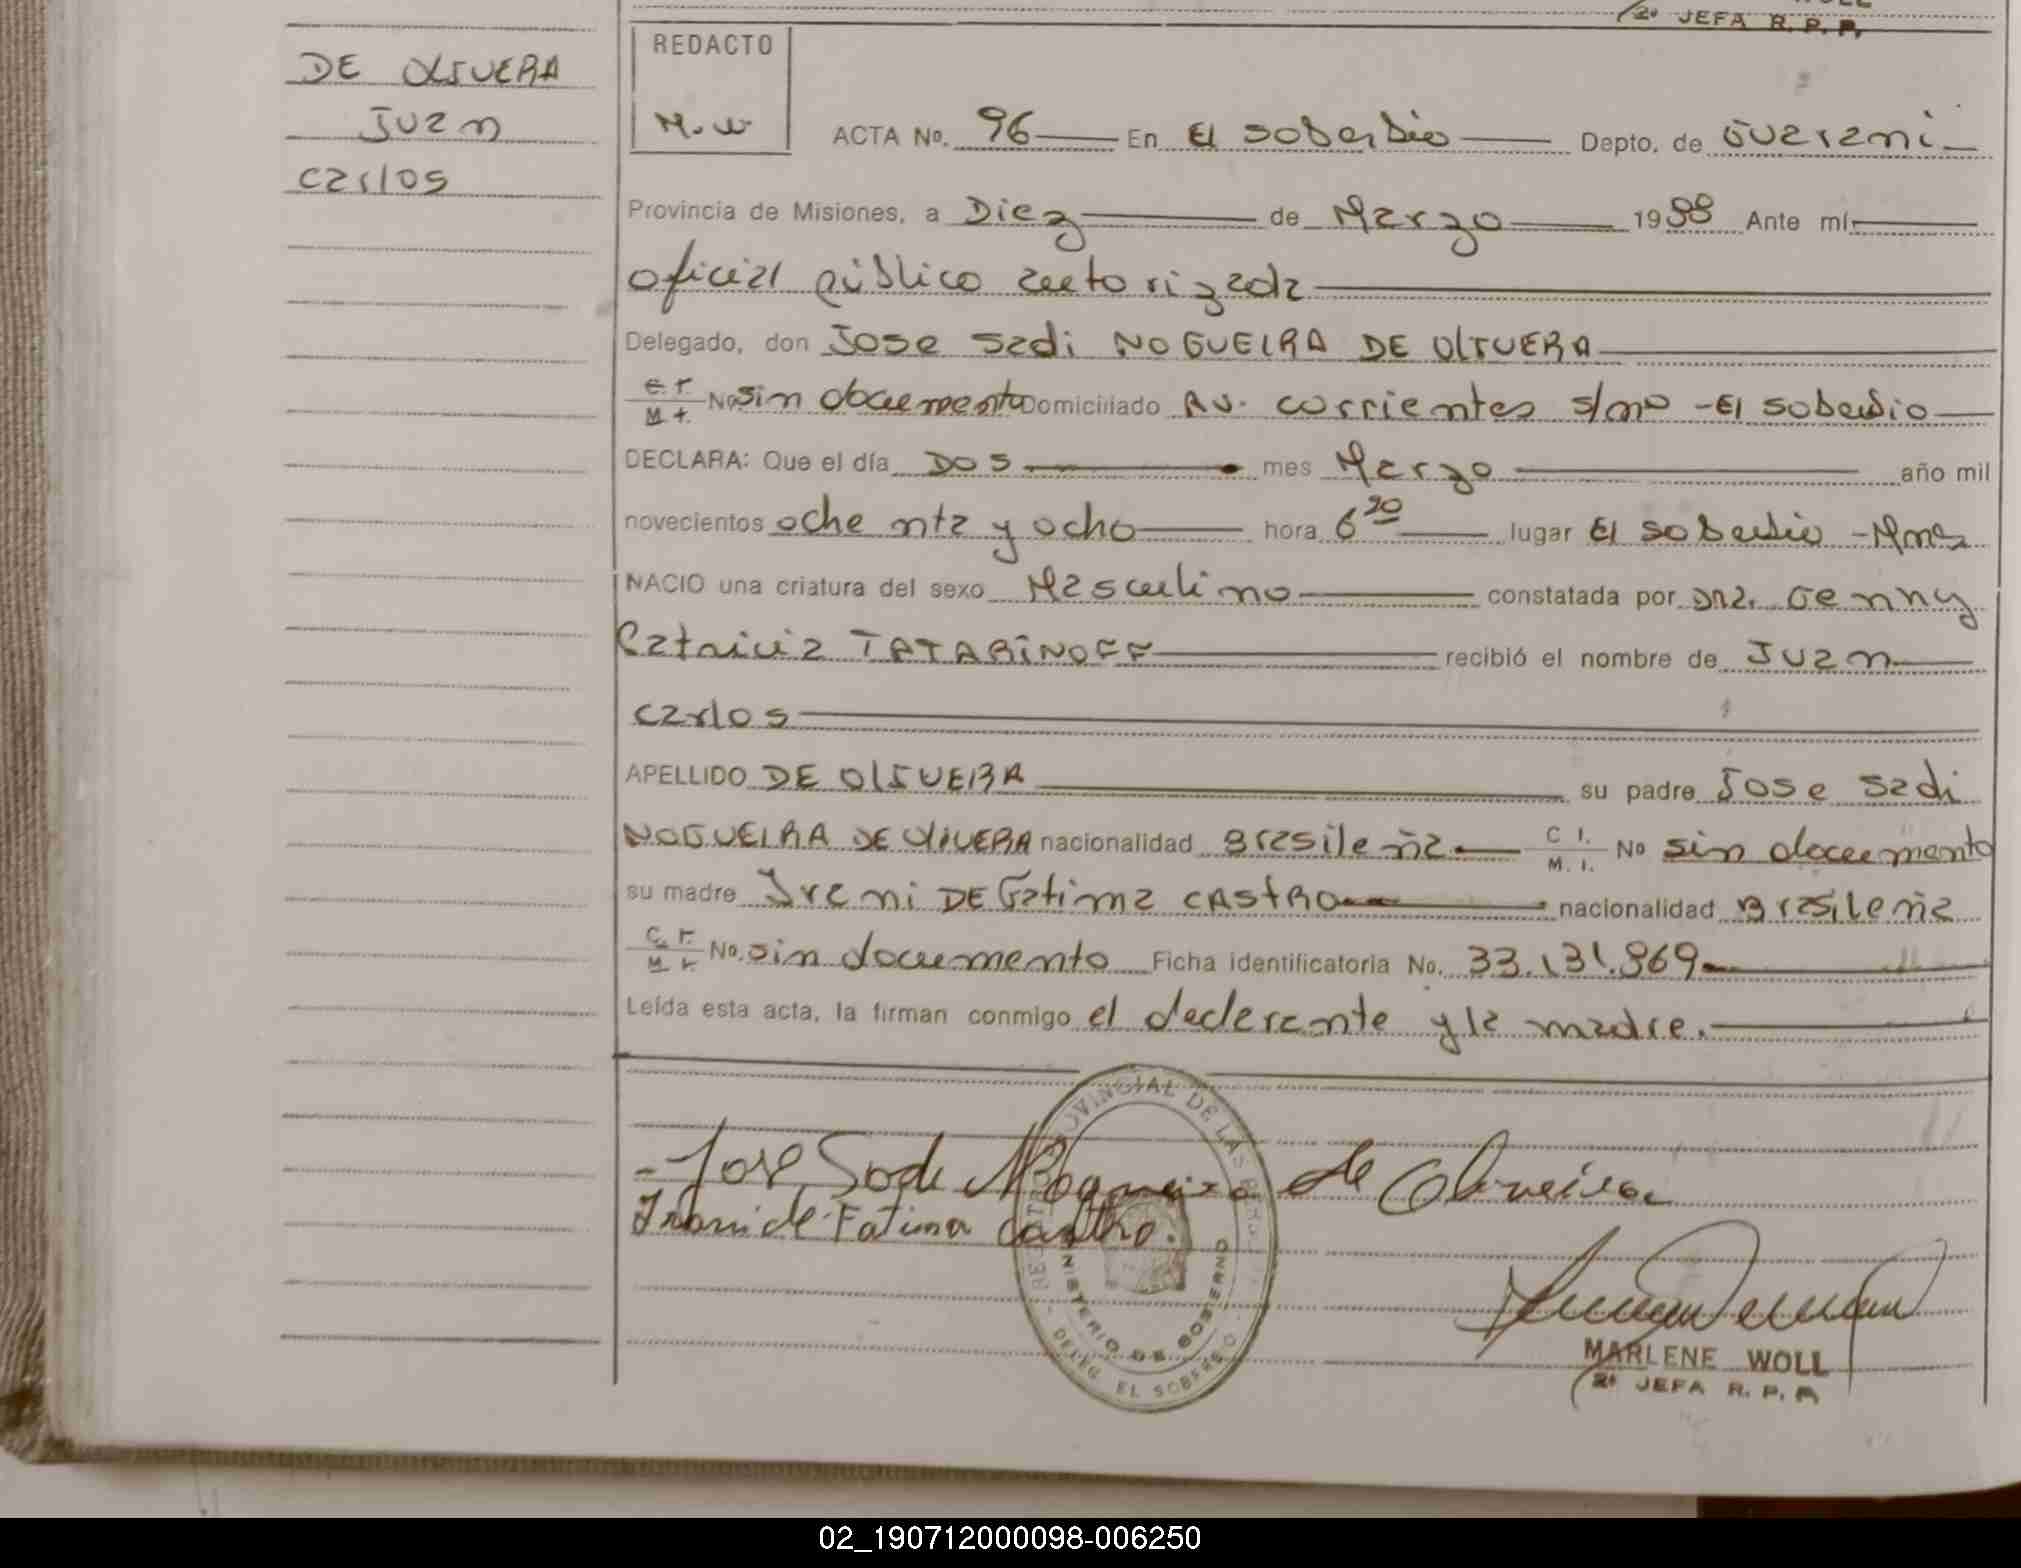 2º JEFA R. P. P.
DE OLIVERA
JUAN
CARLOS
REDACTO
M.W
ACTA No. 96 En El Soberbio Depto. de Guarani
Provincia de Misiones, a Diez de Marzo 1988 Ante mí
oficial público autorizada
Delegado, don Jose Sadi NOGUEIRA DE OLIVERA
C.I. M.I. No sin documento Domiciliado AV. Corrientes s/nº - El Soberbio
DECLARA: Que el día DOS mes Marzo año mil
novecientos ochenta y ocho hora 6 20 lugar El Soberbio - Mnes
NACIO una criatura del sexo Masculino constatada por Dra. Genny
Patricia TATARINOFF recibió el nombre de JUAN
Carlos
APELLIDO DE OLIVEIRA su padre Jose Sadi
NOGUEIRA DE OLIVERA nacionalidad Brasileña C I. M. I. No sin documento
su madre Irani DE Fatima CASTRO nacionalidad Brasileña
C. I. M. I. No. sin documento Ficha identificatoria No. 33.131.969
Leída esta acta, la firman conmigo el declarante y la madre.
Jose Sadi Nogueira de Oliveira
Irani de Fatima Castro.
MINISTERIO DE GOBIERNO
DELEG. EL SOBERBIO
MARLENE WOLL
2º JEFA R. P. P.
02_190712000098-006250